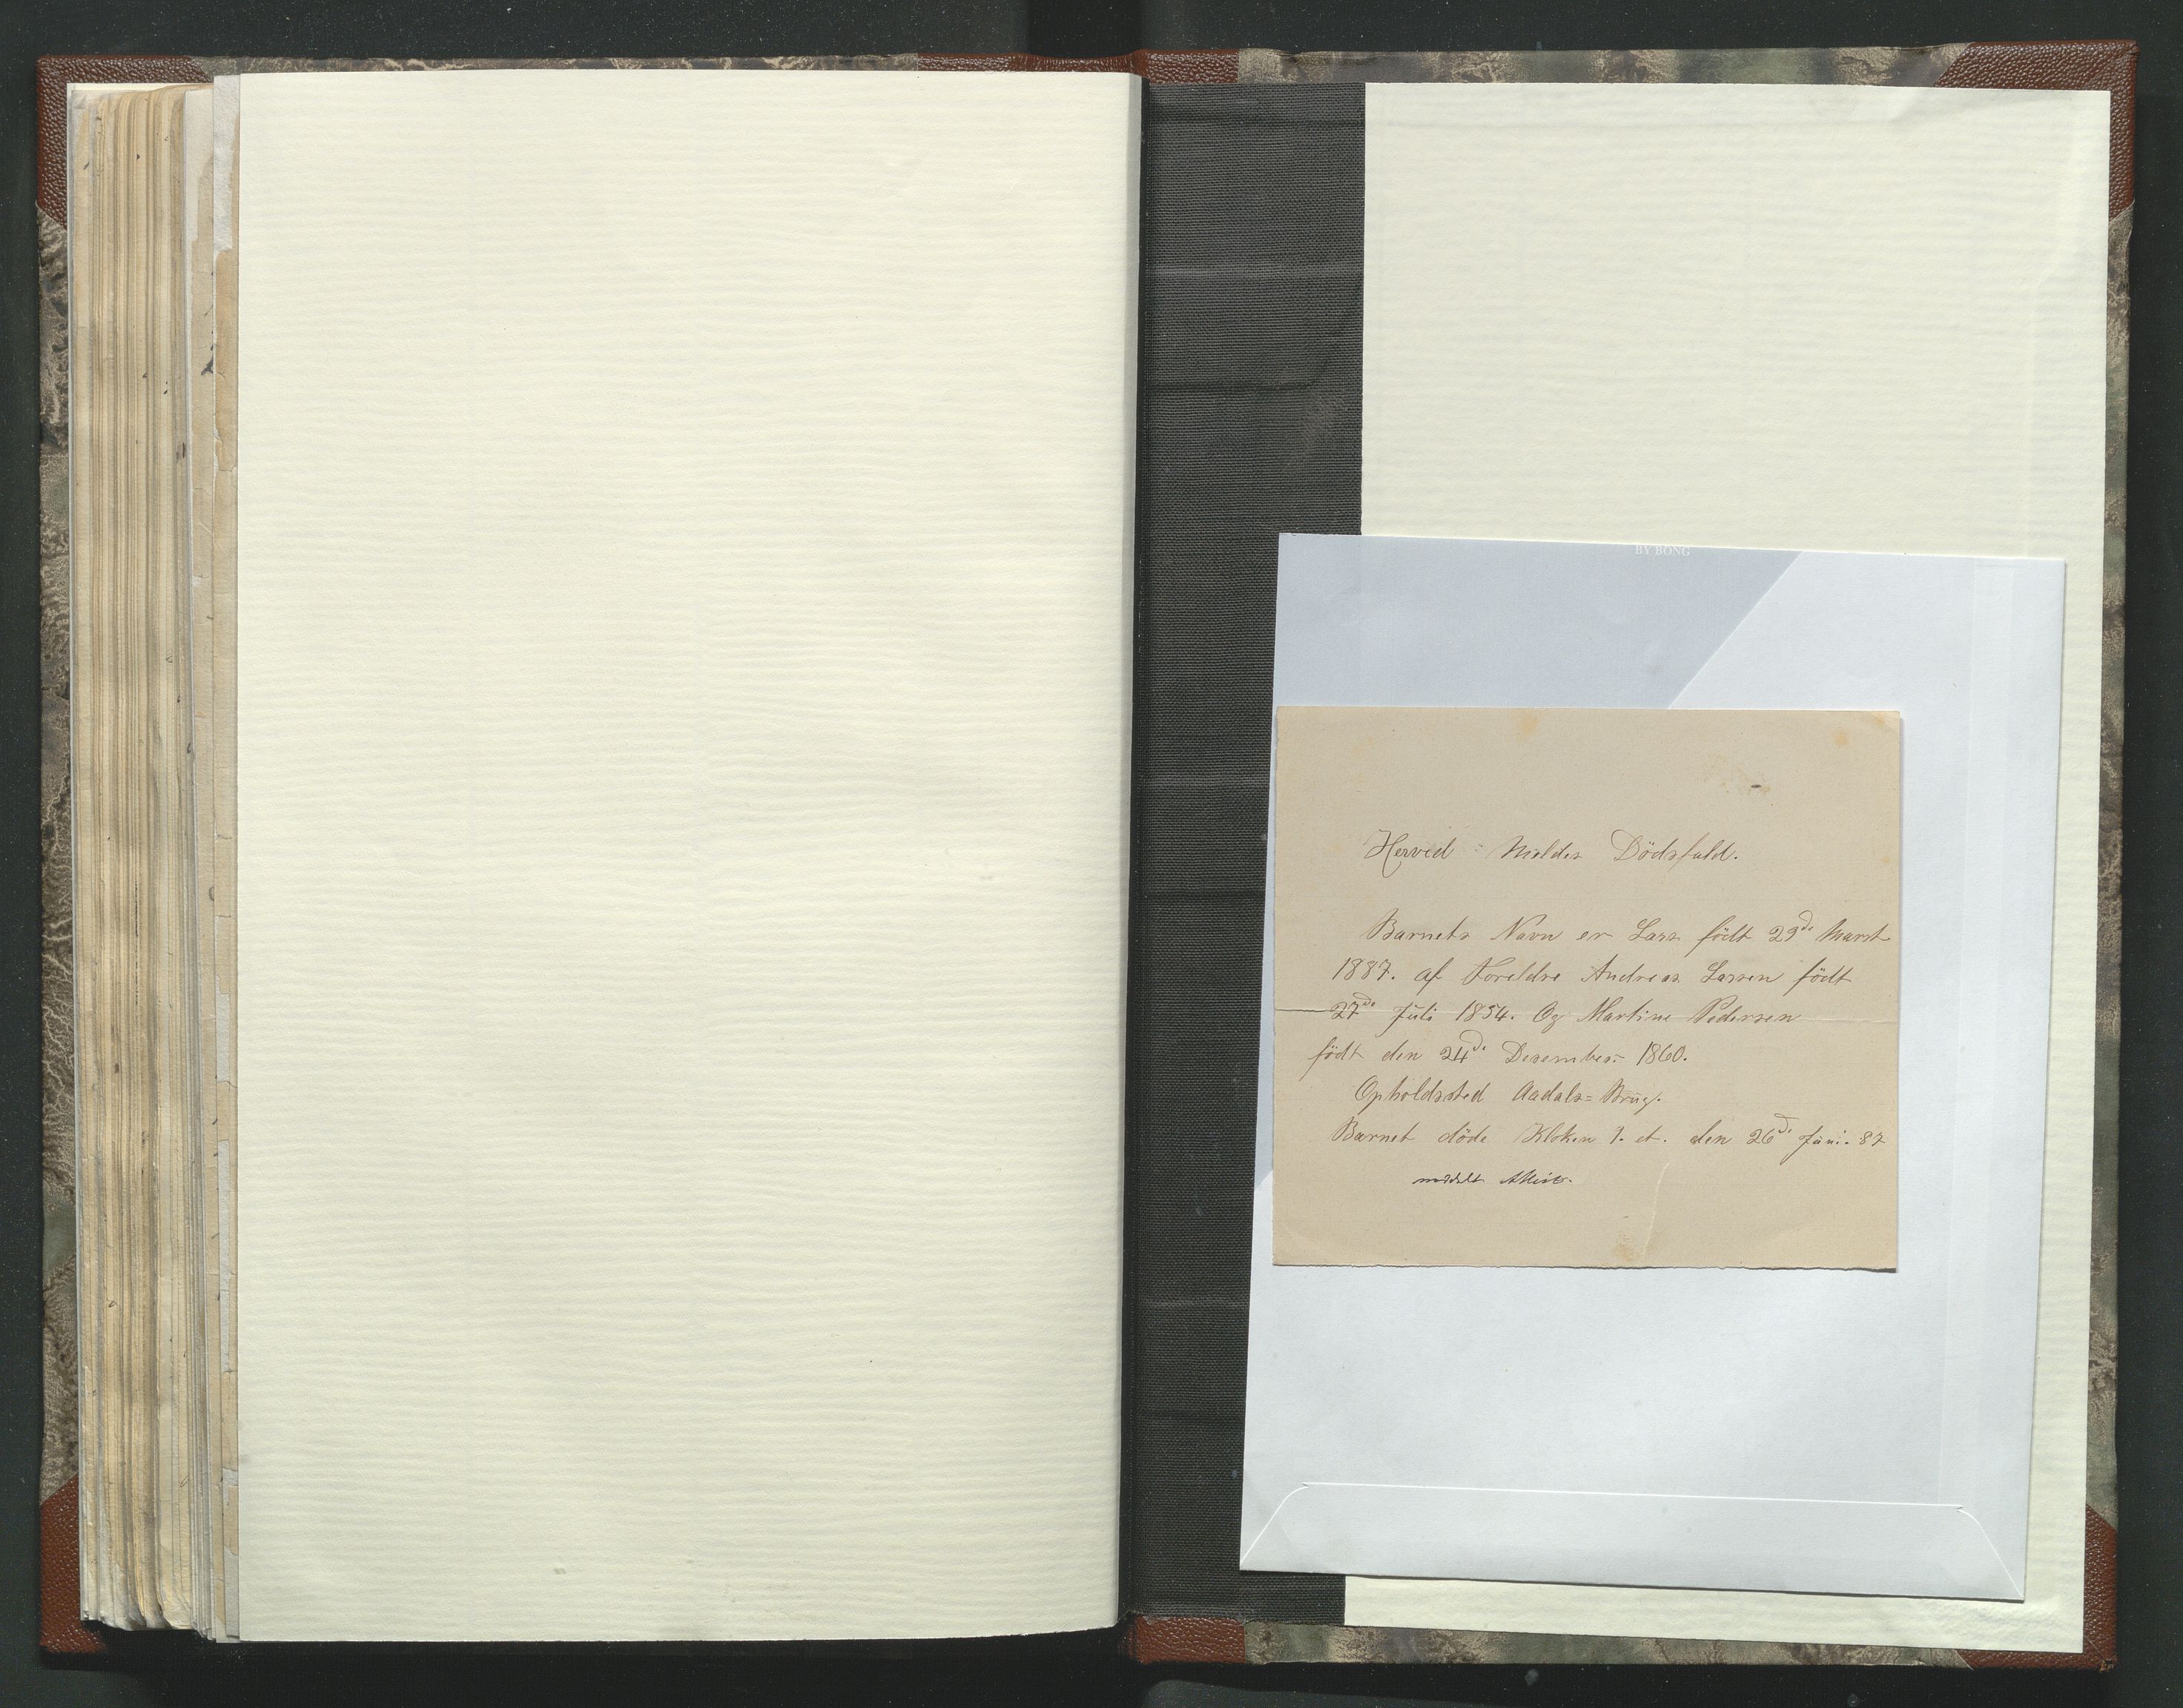 BY BONG
Hervid = Meldes Dödsfald.
Barnets Navn er Lars födt 29de Marst
1887. af Foreldre Andreas Larsen födt
27de Juli 1854. Og Martine Pedersen
födt den 24de Desember 1860.
Opholdssted Aadals=Brug.
Barnet döde Kloken 1. et. den 26de Juni. 87
meddelt